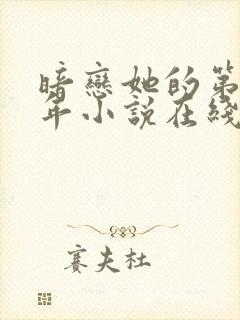 暗戀她的第
年小說在綫
賽夫杜